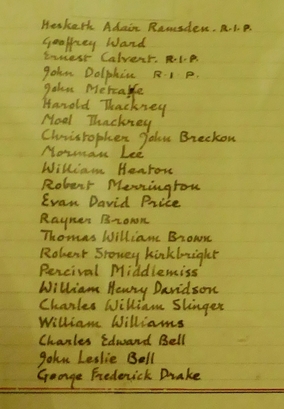 Hesketh Adair Ramsden. R.I.P.
Geoffrey Ward
Ernest Calvert. R.I.P.
John Dolphin R.I.P.
John Metcalfe
Harold Thackrey
Noel Thackrey
Christopher John Breckon
Norman Lee
William Heaton
Robert Merrington
Evan David Price
Rayner Brown
Thomas William Brown
Robert Stoney Kirkbright
Percival Middlemiss
William Henry Davidson
Charles William Slinger
William Williams
Charles Edward Bell
John Leslie Bell
George Frederick Drake